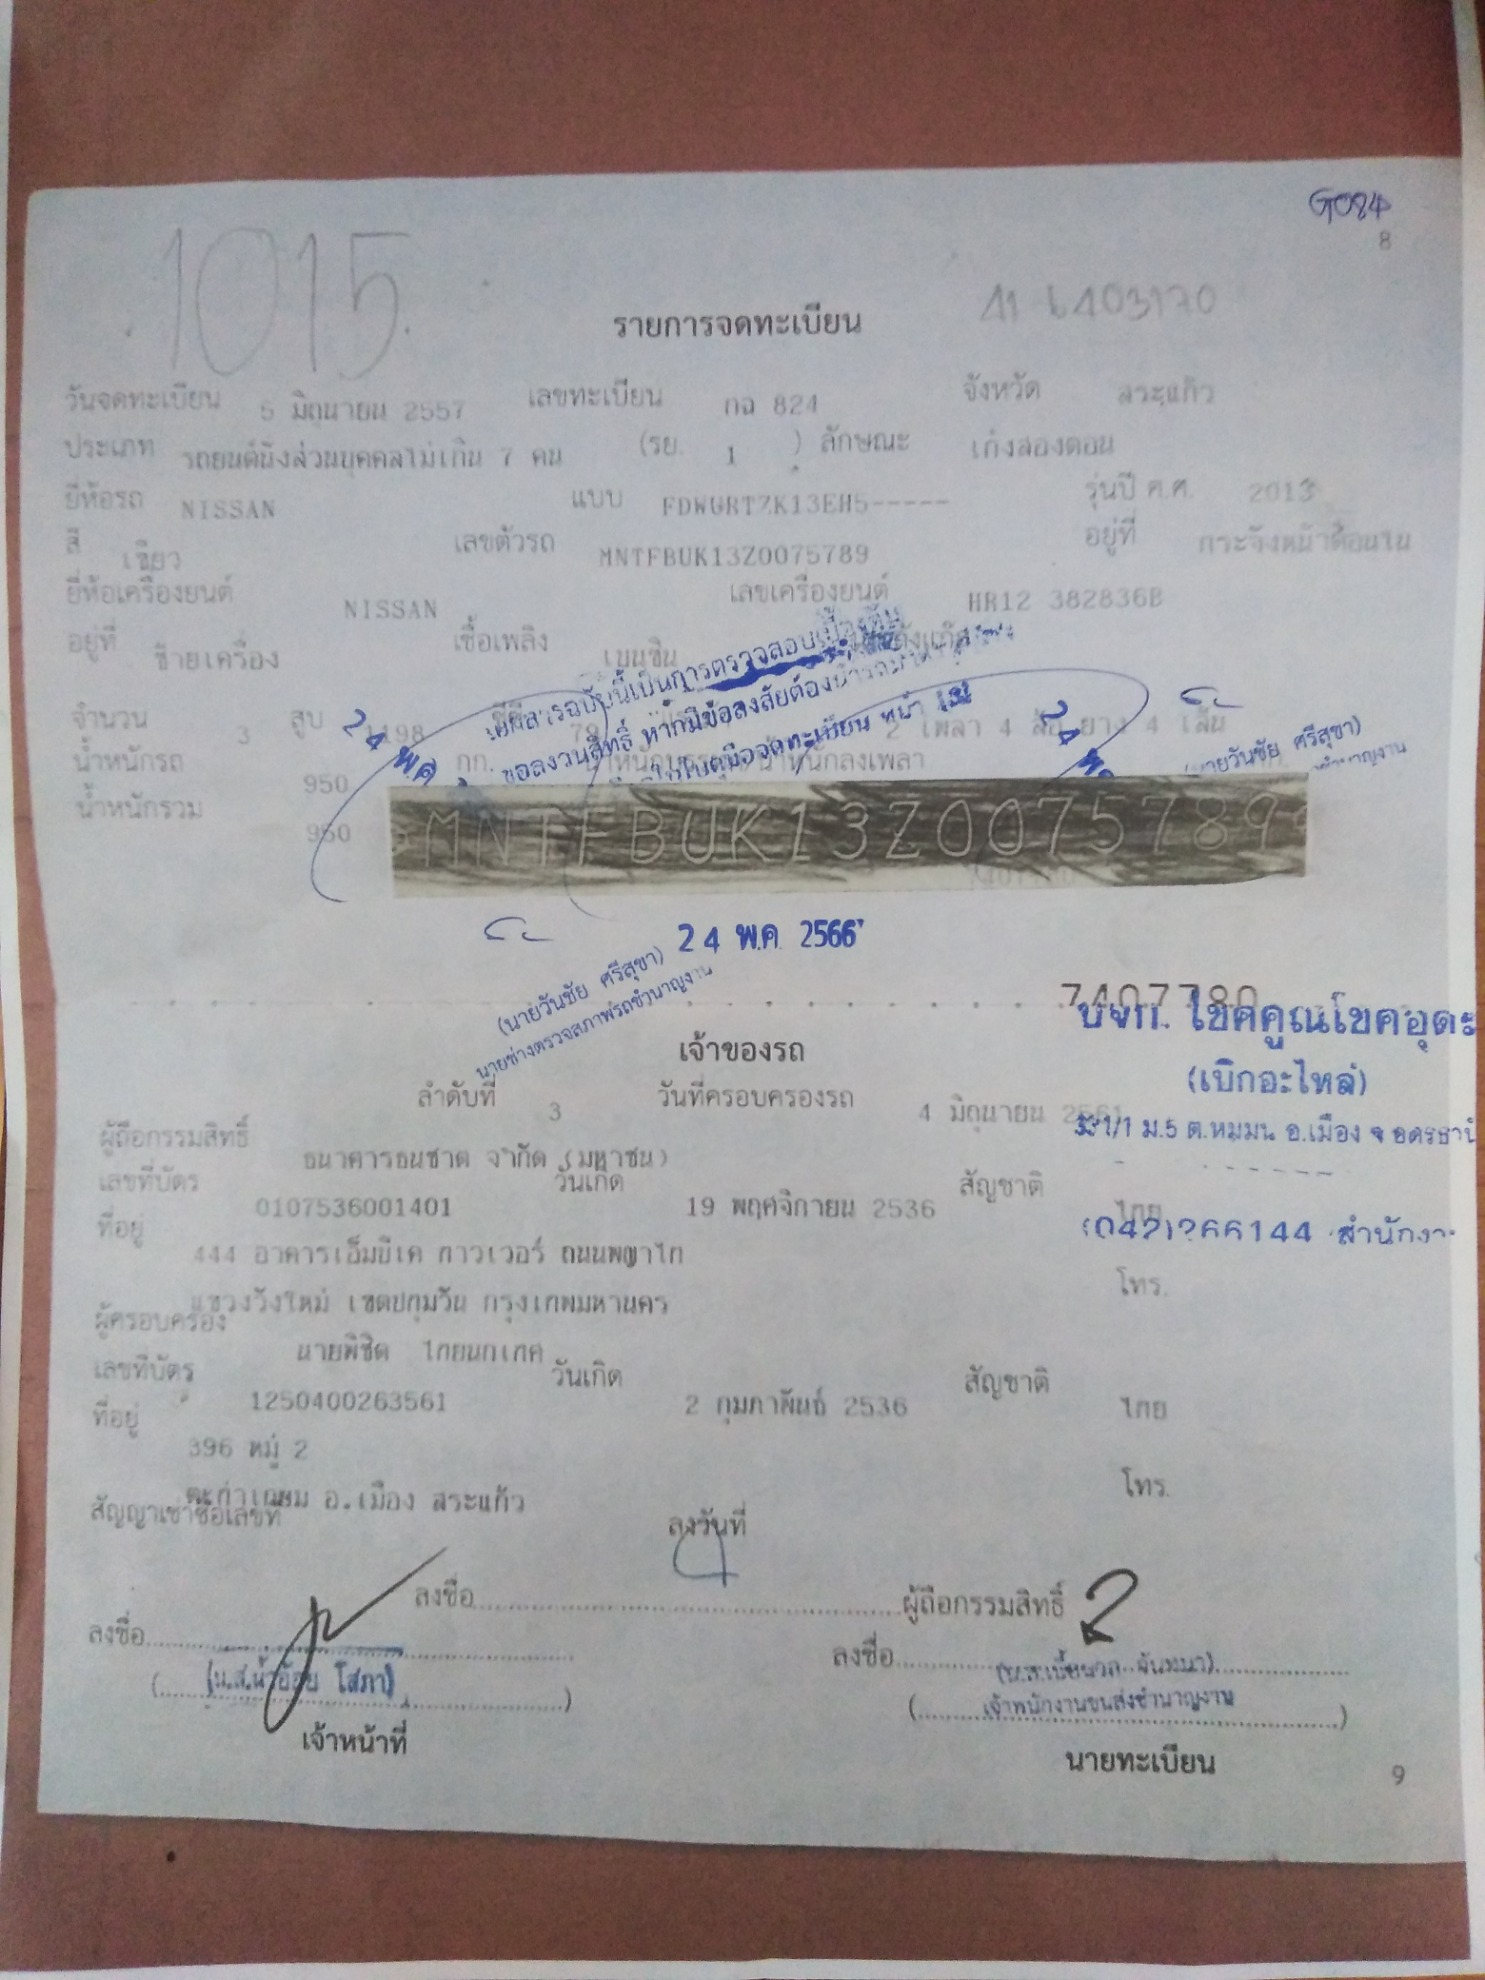 G084
8
1015
รายการจดทะเบียน
วันจดทะเบียน 5 มิถุนายน 2557 เลขทะเบียน กฉ 824 จังหวัด สระแก้ว
ประเภท รถยนต์นั่งส่วนบุคคลไม่เกิน 7 คน (รย. 1 ) ลักษณะ เก๋งสองตอน
ยี่ห้อรถ NISSAN แบบ FDWGRTZK13EH5----- รุ่นปี ค.ศ. 2013
สี เขียว เลขตัวรถ MNTFBUK13Z0075789 อยู่ที่ กระจังหน้าด้อนใน
ยี่ห้อเครื่องยนต์ NISSAN เลขเครื่องยนต์ HR12 382836B
อยู่ที่ ซ้ายเครื่อง เชื้อเพลิง เบนซิน
เอกสารฉบับนี้เป็นการตรวจสอบเบื้องต้น
ขอสงวนสิทธิ์ หากมีข้อสงสัยต้องนำรถมา
จำนวน 3 สูบ 1198 ซีซี 79 2 เพลา 4 ล้อ ยาง 4 เส้น
24 พ.ค.
(นายวันชัย ศรีสุขา)
น้ำหนักรถ 950 กก. น้ำหนักลงเพลา
น้ำหนักรวม 950
MNTFBUK13Z0075789
24 พ.ค. 2566
(นายวันชัย ศรีสุขา)
นายช่างตรวจสภาพรถชำนาญงาน
7407780
บจก. โชคคูณโชคอุดร
(เบิกอะไหล่)
เจ้าของรถ
ลำดับที่ 3 วันที่ครอบครองรถ 4 มิถุนายน 2561
ม.5 ต.หมูม่น อ.เมือง จ อุดรธานี
ผู้ถือกรรมสิทธิ์ ธนาคารธนชาต จำกัด (มหาชน)
เลขที่บัตร 0107536001401 วันเกิด 19 พฤศจิกายน 2536 สัญชาติ ไทย
(042)266144 สำนักงาน
ที่อยู่ 444 อาคารเอ็มบีเค ทาวเวอร์ ถนนพญาไท
แขวงวังใหม่ เขตปทุมวัน กรุงเทพมหานคร โทร.
ผู้ครอบครอง นายพิชิต
เลขที่บัตร 1250400263561 วันเกิด 2 กุมภาพันธ์ 2536 สัญชาติ ไทย
ที่อยู่ 396 หมู่ 2
อ.เมือง สระแก้ว โทร.
สัญญาเช่าซื้อเลขที่ ลงวันที่
ลงชื่อ ผู้ถือกรรมสิทธิ์
ลงชื่อ ลงชื่อ
(น.ส.น้ำอ้อย โสภา)
เจ้าพนักงานขนส่งชำนาญงาน
เจ้าหน้าที่ นายทะเบียน
9